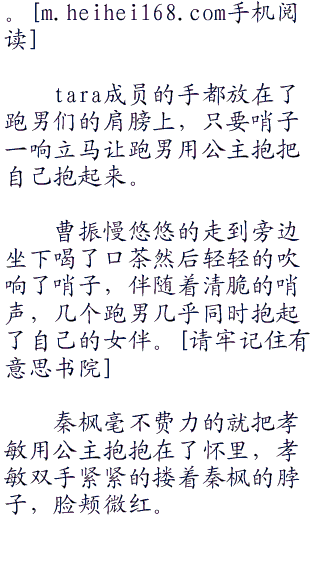 。[m.heihei168.com手机阅
读]
tara成员的手都放在了
跑男们的肩膀上，只要哨子
一响立马让跑男用公主抱把
自己抱起来。
曹振慢悠悠的走到旁边
坐下喝了口茶然后轻轻的吹
响了哨子，伴随着清脆的哨
声，几个跑男几乎同时抱起
了自己的女伴。[请牢记住有
意思书院]
秦枫毫不费力的就把孝
敏用公主抱抱在了怀里，孝
敏双手紧紧的搂着秦枫的脖
子，脸颊微红。